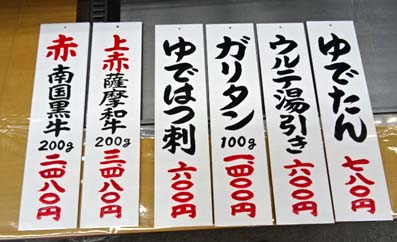 ゆでたん
七八〇円
ウルテ湯引き
六〇〇円
ガリタン
100g
一四〇〇円
ゆではつ刺
六〇〇円
上赤薩摩和牛
200g
三四八〇円
赤南国黒牛
200g
二四八〇円